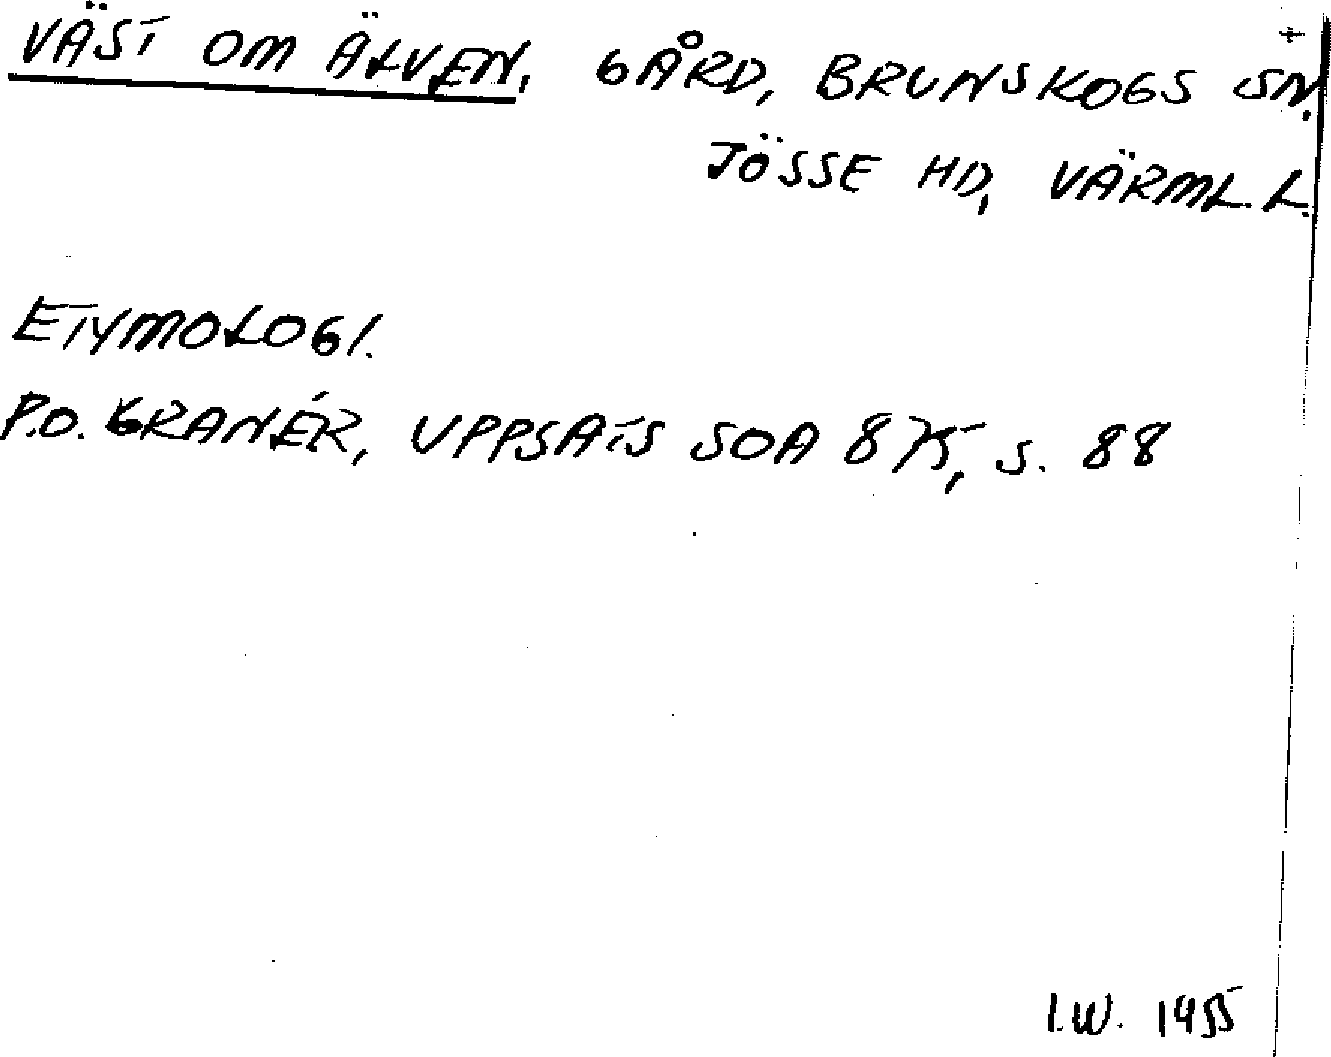 VÄST OM ÄLVEN, GÅRD, BRUNSKOGS SN.
JÖSSE HD, VÄRML. L.
ETYMOLOGI.
P.O. GRANÉR, UPPSATS SOA 875, S. 88
I.W. 1955